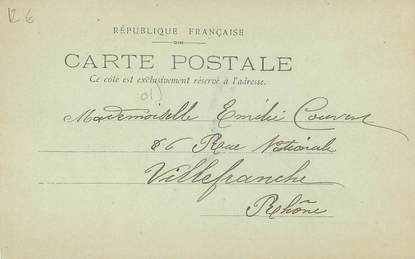 R 6
RÉPUBLIQUE FRANÇAISE
CARTE POSTALE
Ce côté est exclusivement réservé à l'adresse.
Mademoiselle Emilie Couvert
86 Rue Nationale
Villefranche
Rhône